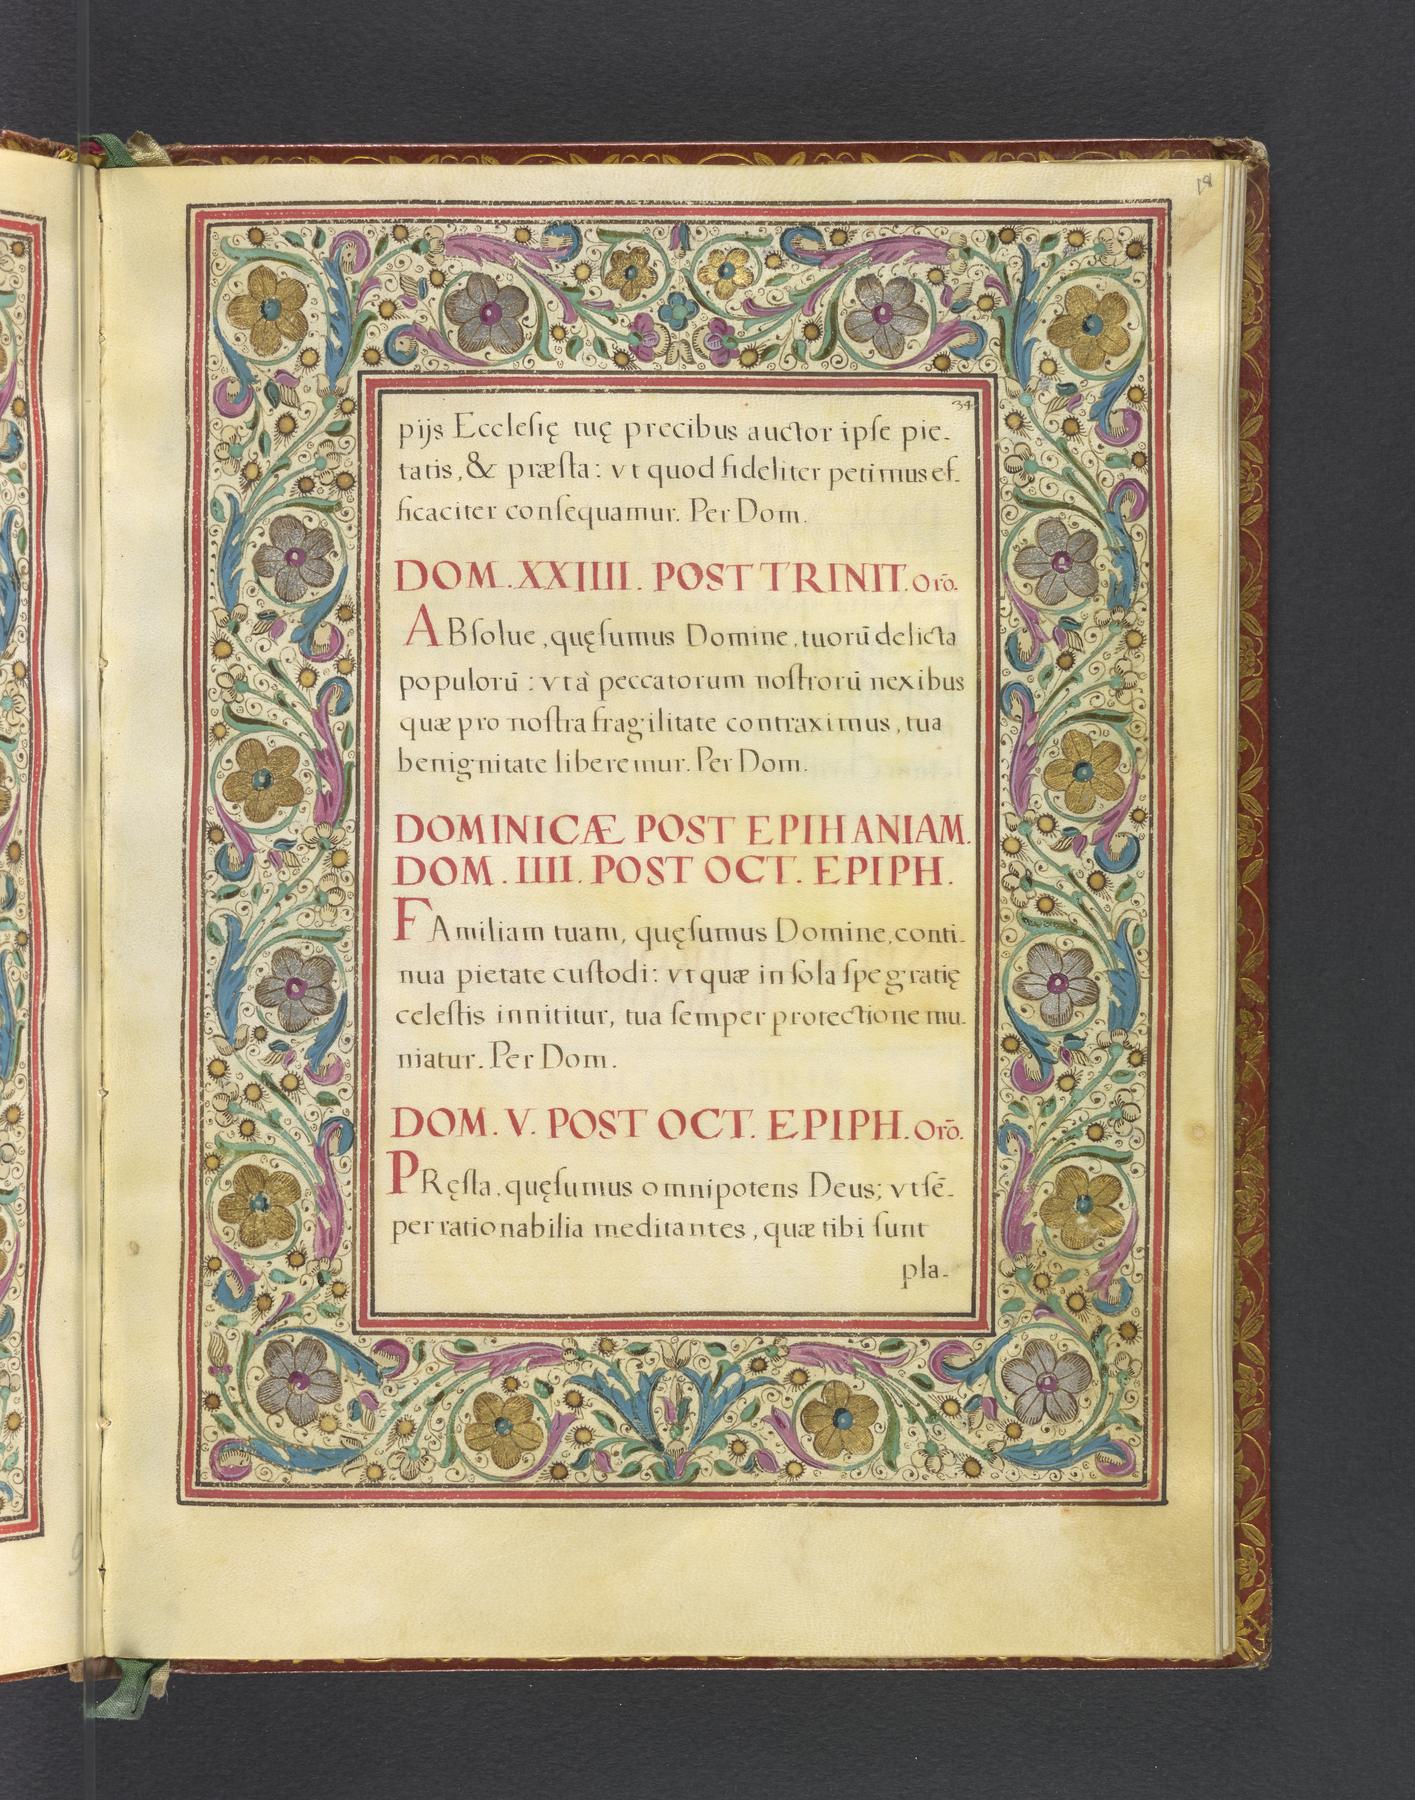 18
34
pijs Eccleſię tuę precibus auctor ipſe pie-
tatis, & præſta: vt quod fideliter petimus ef-
ficaciter conſequamur. Per Dom.
DOM. XXIIII. POST TRINIT. Orō.
ABſolue, quęſumus Domine, tuorū delicta
populorū: vt à peccatorum noſtrorū nexibus
quæ pro noſtra fragilitate contraximus, tua
benignitate liberemur. Per Dom.
DOMINICÆ POST EPIHANIAM.
DOM. IIII. POST OCT. EPIPH.
FAmiliam tuam, quęſumus Domine, conti-
nua pietate cuſtodi: vt quæ in ſola ſpe gratię
celeſtis innititur, tua ſemper protectione mu-
niatur. Per Dom.
DOM. V. POST OCT. EPIPH. Orō.
PRęſta, quęſumus omnipotens Deus; vt ſē-
per rationabilia meditantes, quæ tibi ſunt
pla-